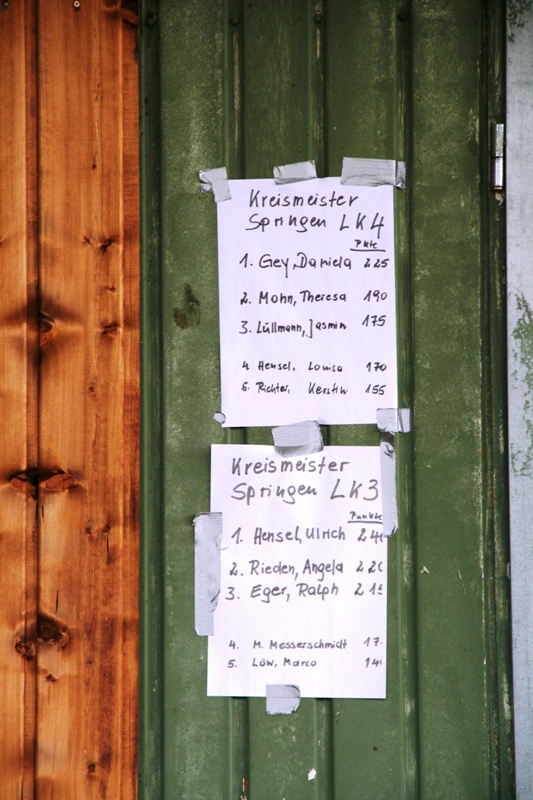 Kreismeister
Springen LK3
Punkte
1. Hensel, Ulrich
2. Rieden, Angela
3. Eger, Ralph
4. M. Messerschmidt
5. Löw, Marco
Kreismeister
Springen LK4
Pkte
1. Gey, Daniela 225
2. Mohn, Theresa 190
3. Lüllmann, Jasmin 175
4. Hensel, Lowisa 170
5. Richter, Kerstin 155